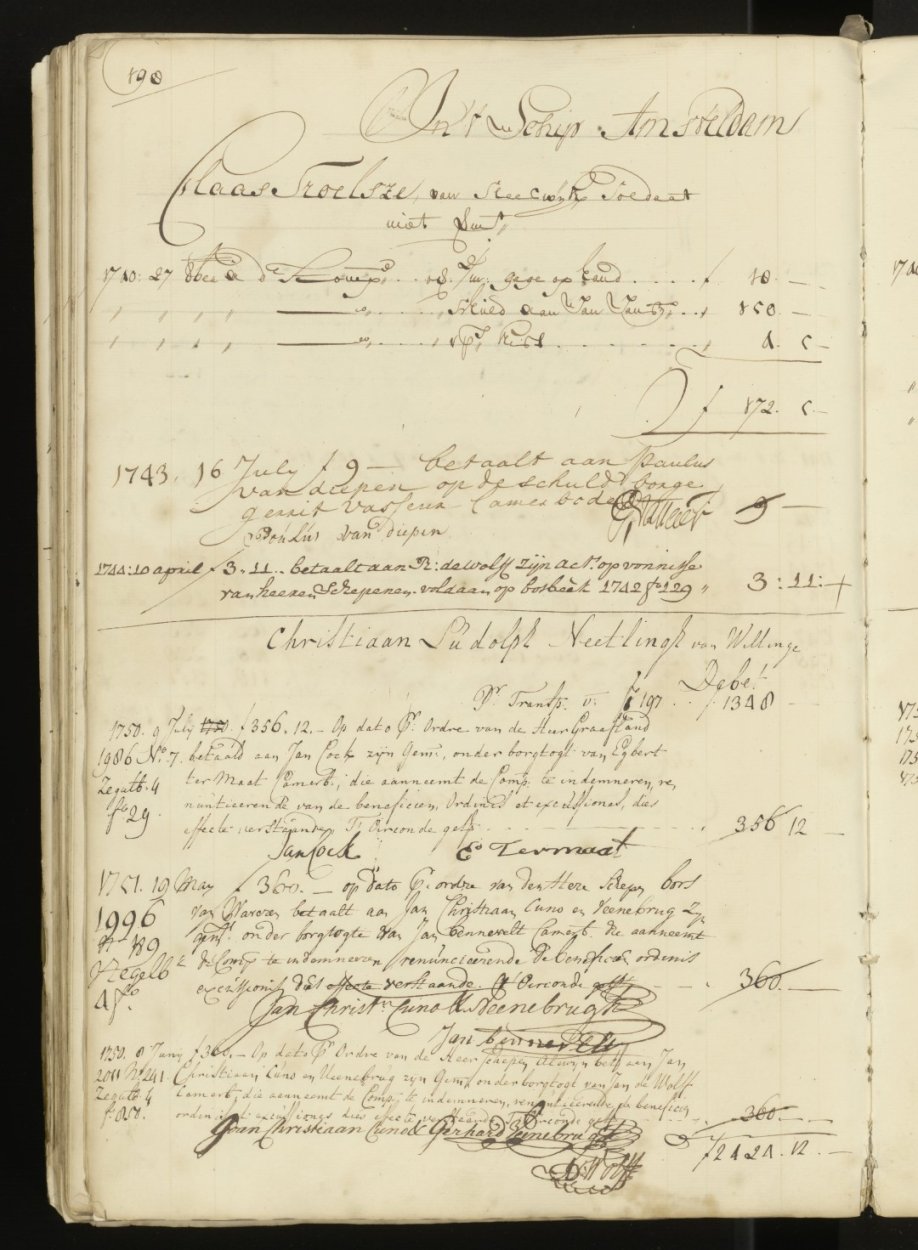 198
In't Schip Amsterdam
Claas Troelsze, van Steenwijk Soldaat
niet
1740: 27 de Comp gage op hand f 18. —
" " " " Schuld aan Jan " 150 —
" " " " kist "
f 172.
1743. 16 July f 9 — betaalt aan Paulus
van diepen op de schuld borge
gerrit vasseur Camerbode 9 —
Poulus van Diepen
1744: 10 april f 3.11.. betaalt aan R: de wolff zijn act: op vonnisse
van heeren Schepenen. voldaan op 1742 fo 129 " 3:11:
Christiaan Ludolph Neetlingh van
Debet
Pr Transp. v: f 197 . . f 1348
1750. 9 July f 356.12.— Op dato Pr Ordre van de Heer Graafland
1986 No. 7. betaald aan Jan Cock zijn Gem:, onder borgtogt van Egbert
Zegult. 4 ter Maat Camerb:; die aanneemt de Comp: te indemneren, re
fo 29. nuntieerende van de beneficien, Ordinis et excussionis, dies
effecte verstaande, T' Oirconde get: 356 12 —
Jan Cock E Termaat
1751. 19 May f 360. — op dato Pr: ordre van den Here Schepen bors
1996 van Waveren betaalt aan Jan Christiaan Cuno en Veenebrug zyn
N 189 gemt: onder borgtogte van Jan Bennevelt Camerb: die aanneemt
Zegelt de Comp te indemneren renuncieerende de beneficien ordinis
4 fo. excussionis dies effecte verstaande. T Oirconde get: 360 —
Jan Christn Cuno & Veenebrugh
Jan Bennevelt
1750. 9 Juny f 360.— Op dato Pr Ordre van de Heer Schepen bet: aan Jan
2011 No. 241. Christiaan Cuno en Veenebrug zyn Gem: onder borgtogt van Jan de Wolff
Zegult. 4 Camerb:; die aanneemt de Comp: te indemneren, renuntieerende de beneficien
ordinis et excussionis dies effecte verstaande, T' Oirconde get: 360 —
Joan Christiaan Cuno & Gerhard Veenebrugh
f 2424. 12. —
D: Wolff